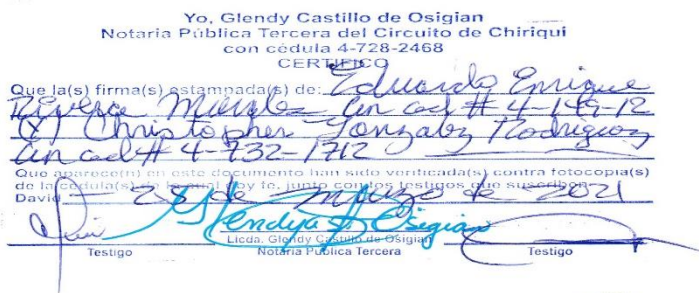 Yo, Glendy Castillo de Osigian
Notaria Pública Tercera del Circuito de Chiriquí
con cédula 4-728-2468
CERTIFICO
Que la(s) firma(s) estampada(s) de: Eduardo Enrique
Rivera Con ced # 4-149-12
(X) Christopher Gonzalez Rodriguez
Con ced # 4-732-1712
Que aparece(n) en este documento han sido verificada(s) contra fotocopia(s)
de la cédula(s) de lo cual doy fe, junto con los testigos que suscriben
David 28 de marzo de 2021
Glendy Osigian
Licda. Glendy Castillo de Osigian
Testigo Notaria Pública Tercera Testigo